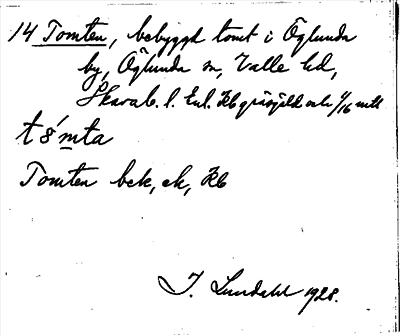 14 Tomten, bebyggd tomt i Öglunda
by, Öglunda sn, Valle hd,
Skarab. l. Enl. Kb gräsjild och 1/16 mtl
t8`mta
Tomten bek, ek, Kb
I. Lundahl 1928.